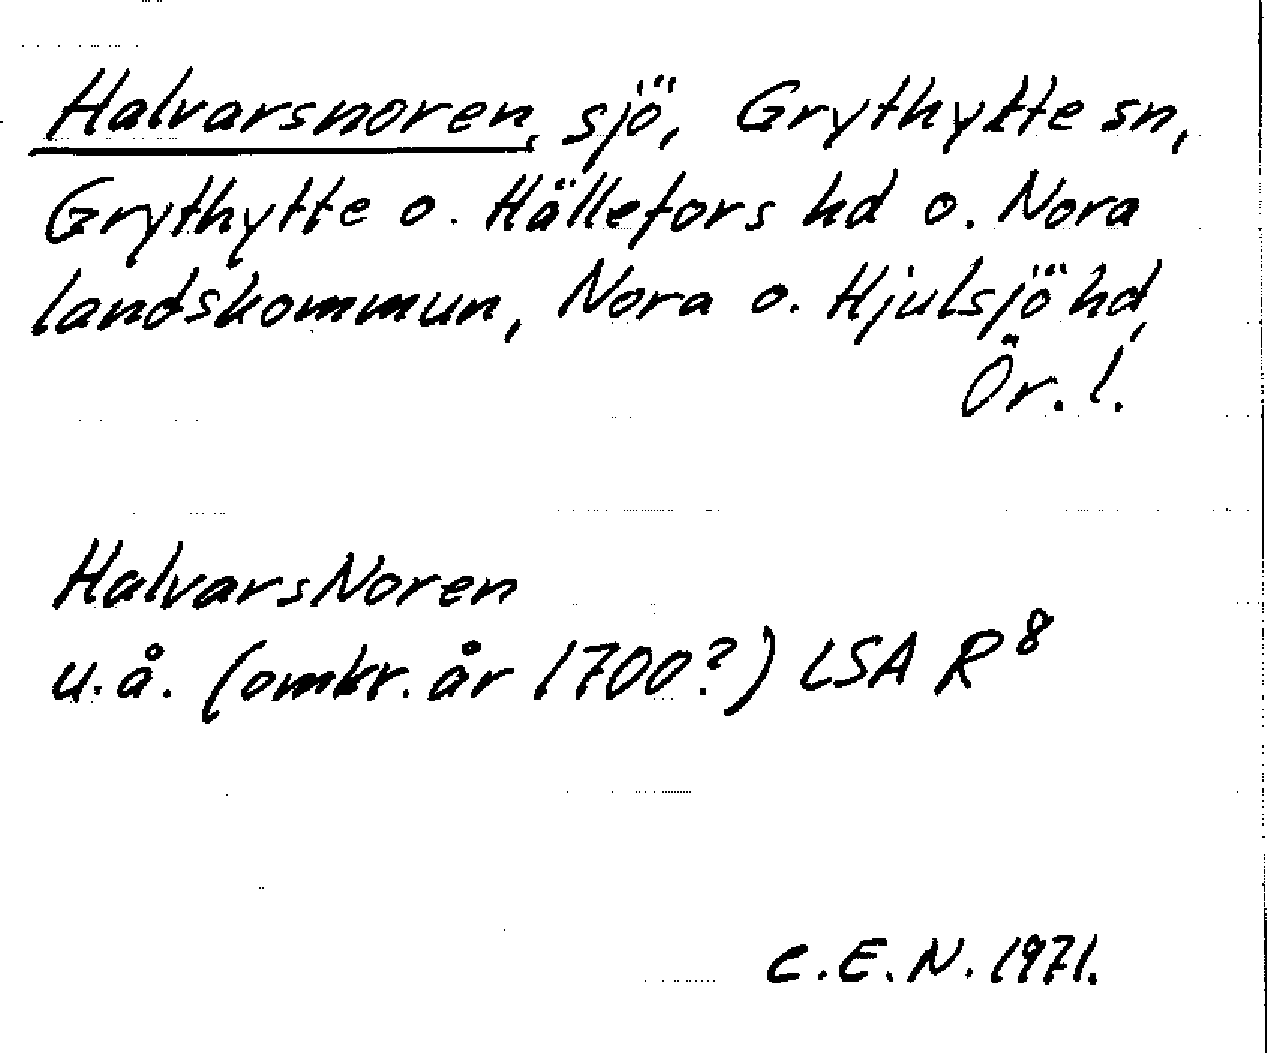 Halvarsnoren, sjö, Grythytte sn,
Grythytte o. Hällefors hd o. Nora
landskommun, Nora o. Hjulsjö hd,
Ör. l.
HalvarsNoren
u.å. (omkr. år 1700?) LSA R⁸
C.E.N. 1971.